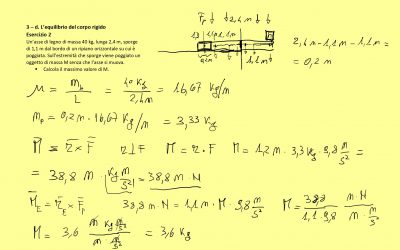 3 – d. L'equilibrio del corpo rigido
Esercizio 2
Un'asse di legno di massa 40 kg, lunga 2,4 m, sporge
di 1,1 m dal bordo di un ripiano orizzontale su cui è
poggiata. Sull'estremità che sporge viene poggiato un
oggetto di massa M senza che l'asse si muova.
• Calcola il massimo valore di M.
2,4 m
1,1 m
2,4 m - 1,1 m - 1,1 m =
= 0,2 m
μ = m_b / L = 40 Kg / 2,4 m = 16,67 Kg/m
m_p = 0,2 m · 16,67 Kg/m = 3,33 Kg
M = r × F r ⊥ F M = r · F M = 1,2 m · 3,3 Kg · 9,8 m/s² =
= 38,8 m · Kg m/s² = 38,8 m · N
M_E = r_E × F_P 38,8 m · N = 1,1 m · M · 9,8 m/s² M = 38,8 / 1,1 · 9,8 m · N / m · m/s²
M = 3,6 m Kg m/s² / m m/s² = 3,6 Kg